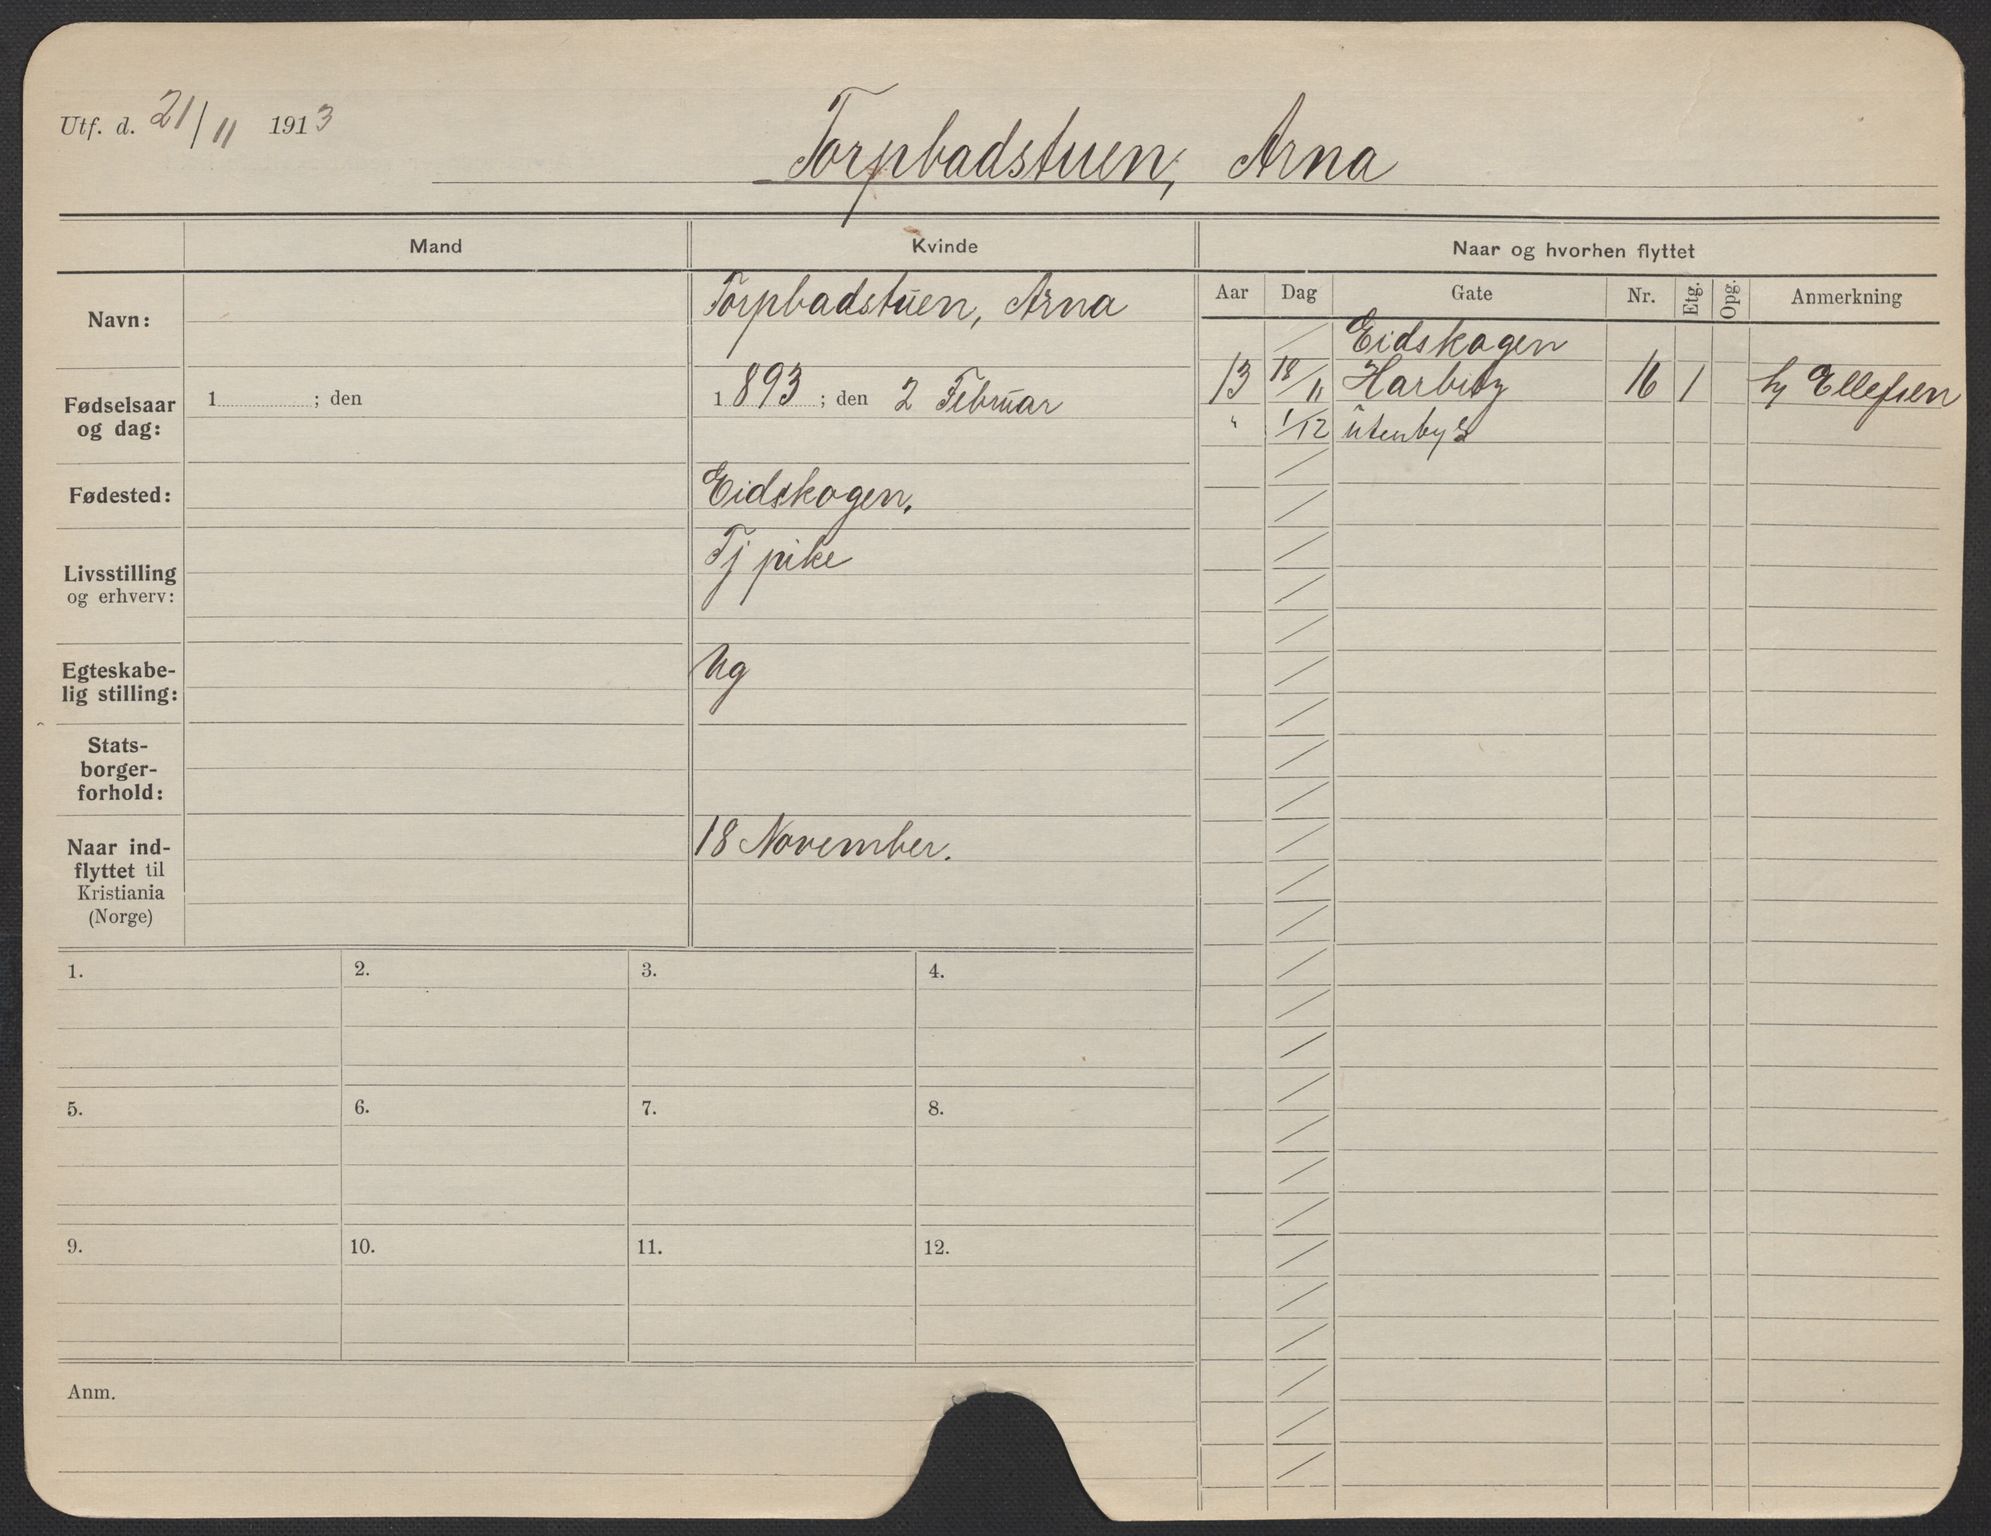 Utf. d. 21/11 1913
Torpbadstuen, Arna
Mand
Kvinde
Naar og hvorhen flyttet
Navn:
Torpbadstuen, Arna
Fødselsaar og dag:
1 ; den
1893 ; den 2 Februar
Fødested:
Eidskogen.
Livsstilling og erhverv:
Tj pike
Egteskabe-
lig stilling:
Ug
Stats-
borger-
forhold:
Naar ind-
flyttet til
Kristiania
(Norge)
18 November.
Aar Dag Gate Nr. Etg. Opg. Anmerkning
Eidskogen
13 18/11 Harbitz 16 1 Ellefsen
" 1/12 utenbys
1. 2. 3. 4.
5. 6. 7. 8.
9. 10. 11. 12.
Anm.